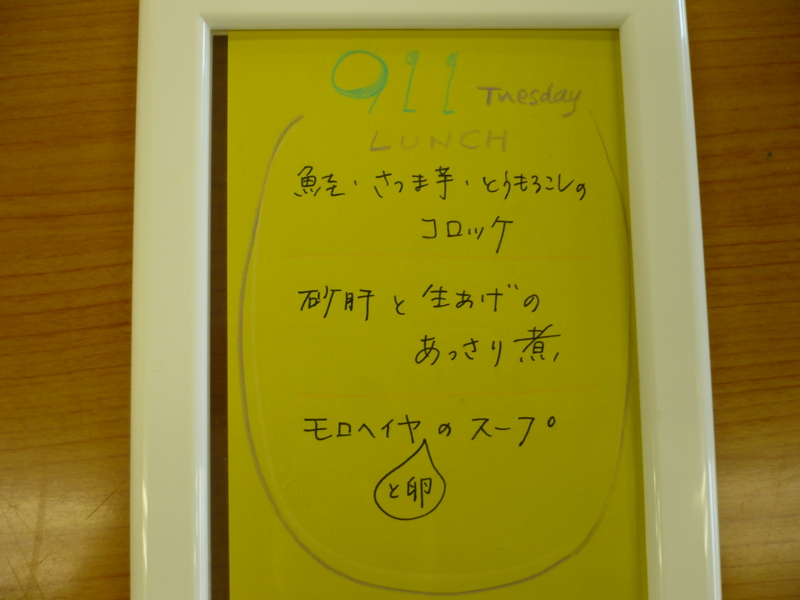 911 Tuesday
LUNCH
鮭・さつま芋・とうもろこしの
コロッケ
砂肝と生あげの
あっさり煮
モロヘイヤのスープ
と卵